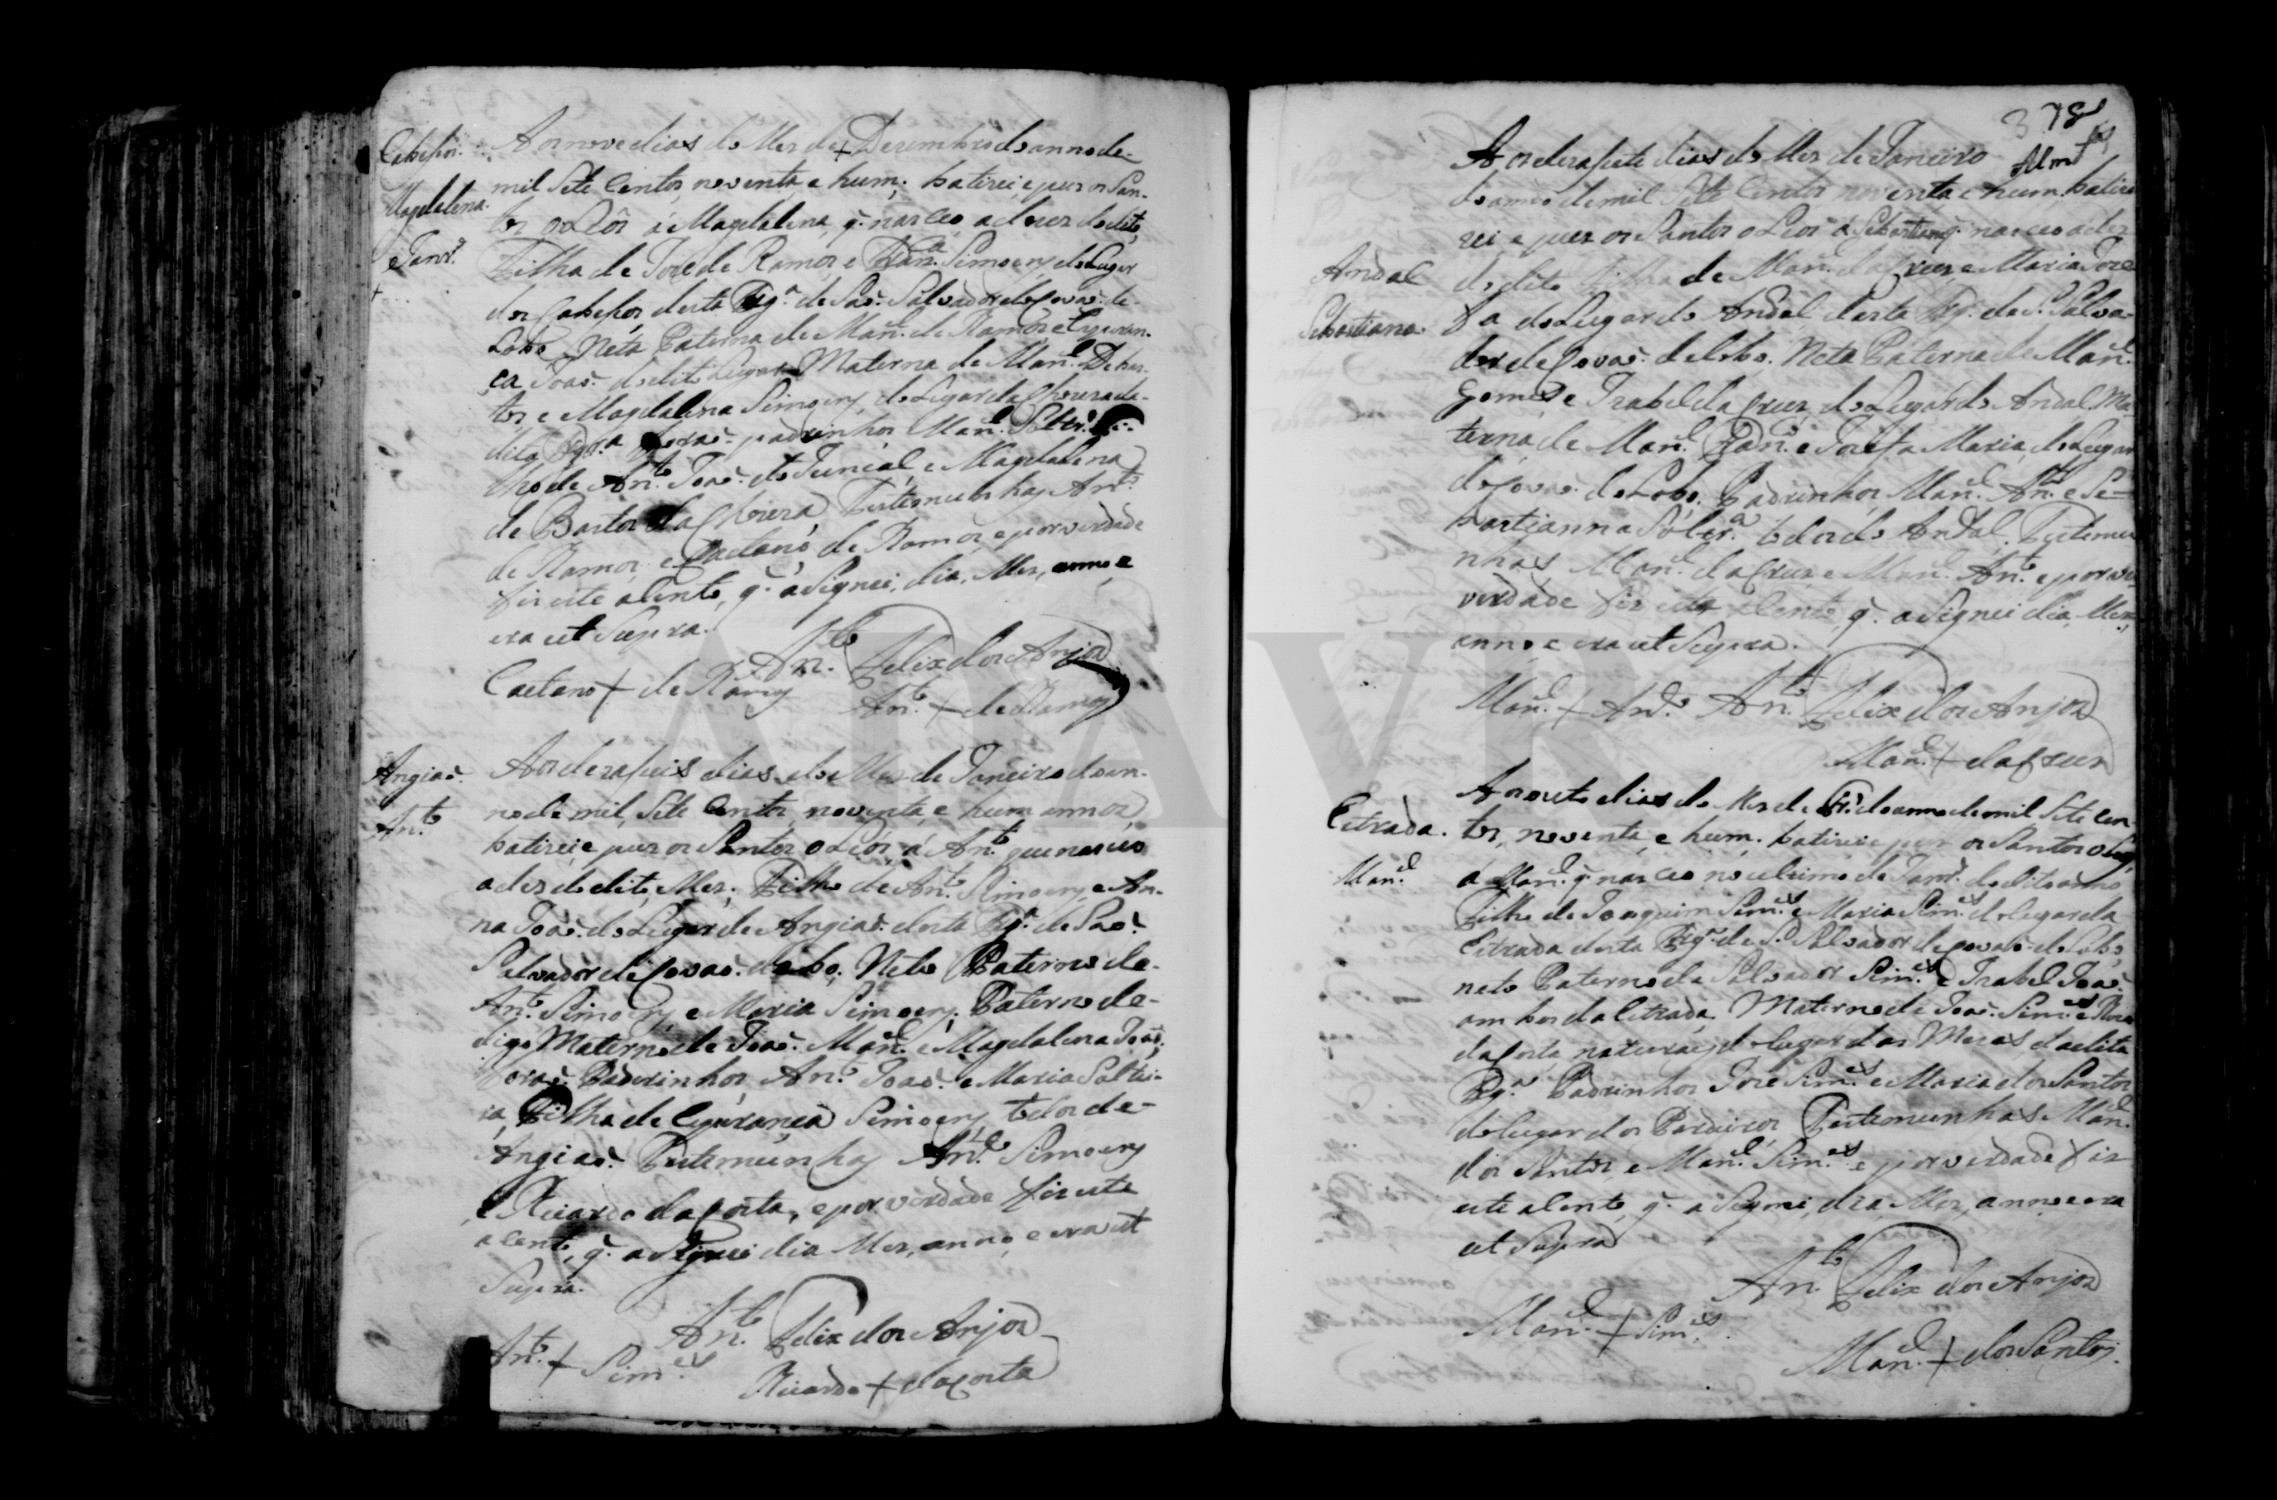 Cabeços.
Magdalena.
e Janr.º
Aos nove dias do Mes de + Dezembro do anno de-
mil Sete Centos noventa e hum; batizei, e puz os San-
tos oLeos á Magdalena, q̃. nasceo, a dous do dito,
Filha de Joze de Ramos e Simoens, do Lugar
dos Cabeços desta Frg.ª de Saõ. Salvador de Covaõ. de-
Lobo, Neta Paterna de Man.el de Ramos e Espran-
ça Joaõ. do dito Lugar Materna de Man.el De bas-
tos, e Magdalena Simoens, do Lugar da Chouza da-
dita Frg.ª foraõ. padrinhos Man.el Soltr.º fi-
lho de An.to Joaõ. do Juncal, e Magdalena
de Bastos da Choiza, Testemunhas An.to
de Ramos, e Caetano, de Ramos, e por verdade
fiz este aSento, q̃. aSignei, dia, Mes, anno, e
era ut Supra.
An.to Felix dos Anjos
Caetano + de Ramos
An.to + de Ramos
Angiaõ.
An.to
Aos dezaseis dias do Mes de Janeiro do an-
no de mil, Sete Centos, noventa, e hum annos,
batizei, e puz os Santos oLeos, á An.to que nasceo
a dez do dito, Mes; Filho de An.to Simoens, e An-
na Joaõ. do Lugar de Angiaõ. desta Frg.ª de Saõ.
Salvador de Covaõ. do Lobo, Neto Paterno de-
An.to Simoens, e Maria Simoens; Paterno de-
digo Materno de Joaõ. Man.el e Magdalena Joaõ.
foraõ. Padrinhos, An.to Joaõ. e Maria Soltei-
ra, Filha de Esperança Simoens, todos de-
Angiaõ. Testemunhas An.to Simoens
e Ricardo da Costa, e por verdade fiz este
aSento, q̃. aSignei dia Mes, anno, e era ut
Supra.
An.to Felix dos Anjos
An.to + Sim.es
Ricardo + da Costa
378
Andal
Sebastiana.
Aos dezasete dias do Mes de Janeiro
do anno de mil Sete Centos noventa e hum, bati-
zei e puz os Santos oLeos á Sebastiana q̃. nasceo a dez
do dito Filha de Man.el da Cruz e Maria Joze-
fa do Lugar do Andal, desta Frg.ª de S. Salva-
dor de Covaõ. de Lobo. Neta Paterna de Man.el
Gomes, e Izabel da Cruz, do Lugar do Andal, Ma-
terna, de Man.el e Josefa Maria, do Lugar
de Covaõ. do Lobo, Padrinhos Man.el An.to e Se-
bastianna Solter.ª todos do Andal, Testemu-
nhas Man.el da Cruz, e Man.el An.to e por ver-
verdade fiz este aSento, q̃. aSignei dia, Mes,
anno, e era ut Supra.
Man.el + An.to An.to Felix dos Anjos
Man.el + da Cruz
Estrada.
Man.el
Aos outo dias do Mes de Fr.º do anno de mil Sete cen-
tos, noventa, e hum. batizei e puz os Santos oLeos,
á Man.el q̃. nasceo no ultimo de Janr.º do dito anno
Filho de Joaquim Sim.es e Maria Sim.es do Lugar da
Estrada desta Frg.ª de S. Salvador de Covaõ. do Lobo,
neto Paterno de Salvador Sim.es e Izabel Joaõ.
ambos da Estrada, Materno de Joaõ. Sim.es e
da Costa, naturaes do Lugar das Mesas, da dita
Frg.ª Padrinhos Joze Sim.es e Maria dos Santos
do Lugar dos Testemunhas Man.el
dos Santos, e Man.el Sim.es e por verdade fiz
este aSento, q̃. aSignei, dia, Mes, anno e era
ut Supra
An.to Felix dos Anjos
Man.el + Sim.es
Man.el + dos Santos.
ADAVR